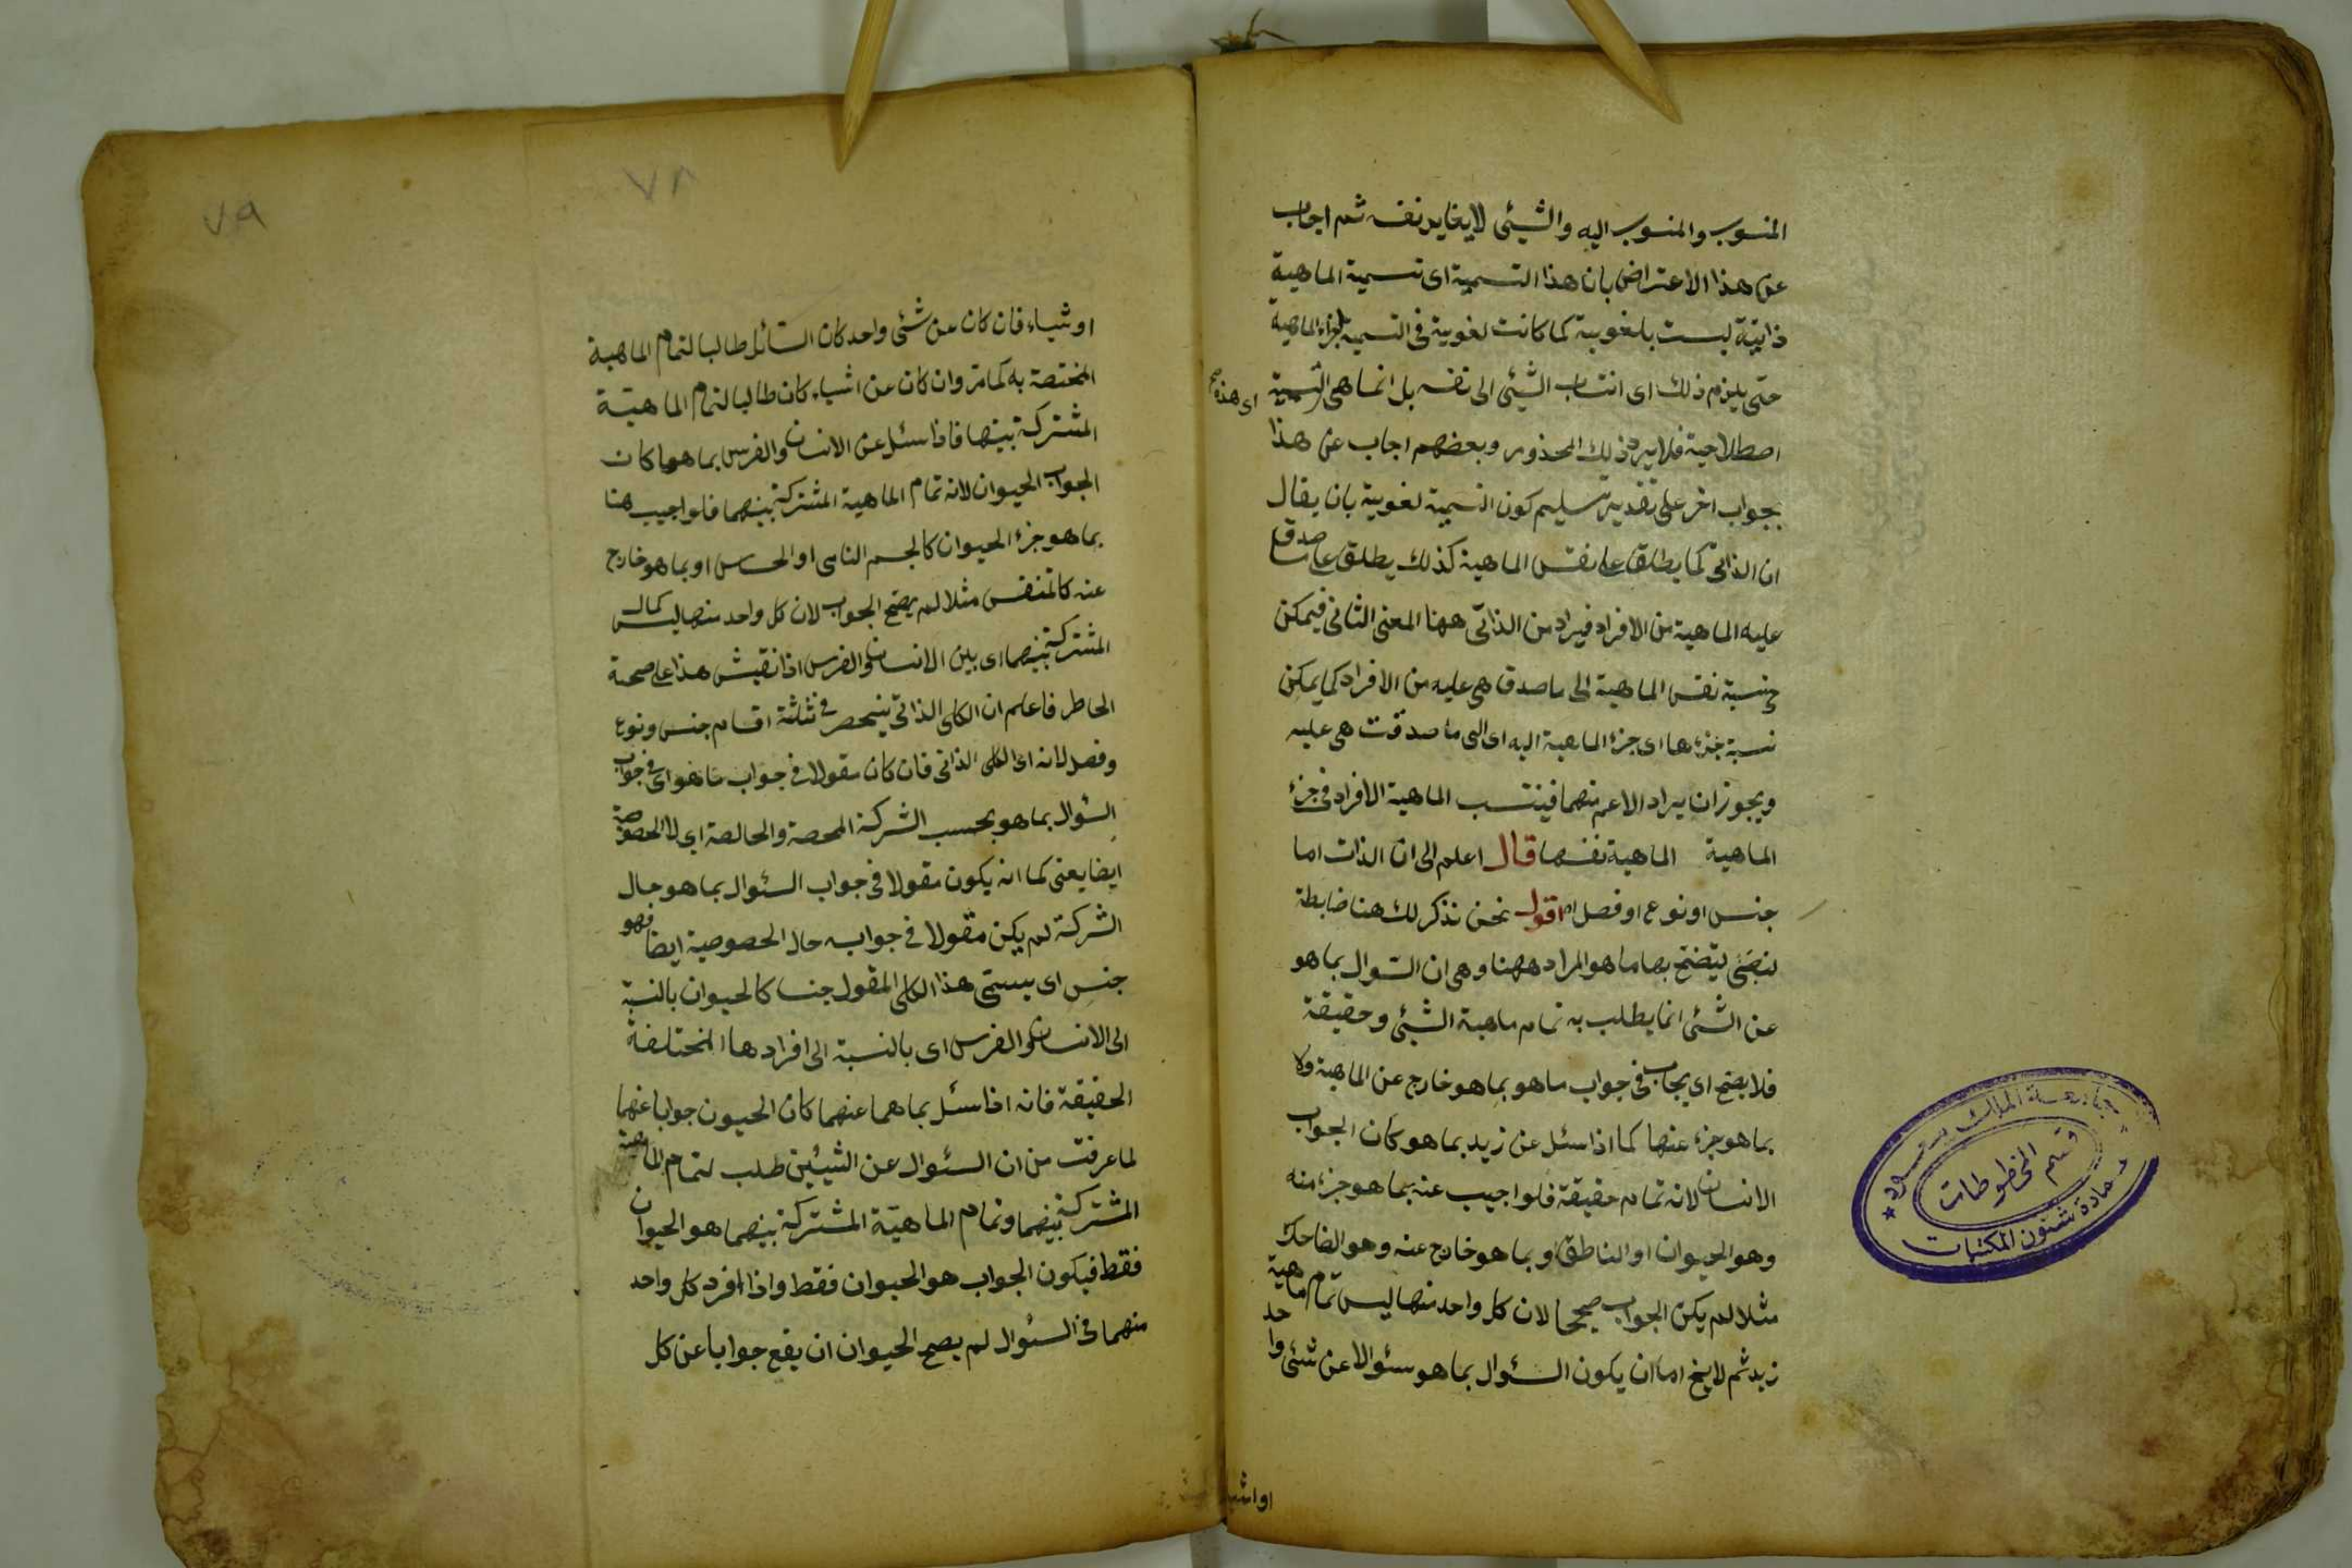 المنسوب والمنسوب اليه والشيئى لايغاير نفسه ثم اجاب
عن هذا الاعتراض بان هذا التسمية اى تسمية الماهية
ذاتية ليست بلغوية كما كانت لغوية فى التسمية بجزء الماهية
حتى يلزم ذلك اى انتساب الشيئى الى نفسه بل انما هى التسمية
اى هذه صح
اصطلاحية فلا يرد ذلك المحذور وبعضهم اجاب عن هذا
بجواب اخر على تقدير تسليم كون التسمية لغوية بان يقال
ان الذاتى كما يطلق على نفس الماهية كذلك يطلق على ما صدق
عليه الماهية من الافراد فيراد من الذاتى ههنا المعنى الثانى فيمكن
ح نسبة نفس الماهية الى ما صدق هى عليه من الافراد كما يمكن
نسبة جزءها اى جزء الماهية اليه اى الى ما صدقت هى عليه
ويجوز ان يراد الاعم منهما فينتسب الماهية الافراد فى جزء
الماهية الماهية نفسها قال اعلم الى ان الذات اما
جنس او نوع او فصل اه اقول نحن نذكر لك هنا ضابطة
يتضح بها ما هو المراد ههنا وهى ان السؤال بما هو
عن الشئى انما يطلب به تمام ماهية الشيئى وحقيقة
فلا يصح اى يجاب فى جواب ما هو بما هو خارج عن الماهية ولا
بما هو جزء عنها كما اذا سئل عن زيد بما هو كان الجواب
الانسان لانه تمام حقيقة فلو اجيب عنه بما هو جزء منه
وهو الحيوان او الناطق او بما هو خارج عنه وهو الضاحك
مثلا لم يكن الجواب صحيحا لان كل واحد منها ليس تمام ماهية
زيد ثم لا يخ اما ان يكون السئوال بما هو سئوالا عن شئى واحد
او اشيا
جامعة الملك سعود
قسم المخطوطات
عمادة شئون المكتبات
٧٨
٧٩
اوشياء فان كان عن شئى واحد كان السائل طالبا لتمام الماهية
المختصة به كما مر وان كان عن اشياء كان طالبا لتمام الماهية
المشتركة بينها فاذا سئل عن الانسان والفرس بما هما كان
الجواب الحيوان لانه تمام الماهية المشتركة بينهما فلو اجيب هنا
بما هو جزء الحيوان كالجسم النامى او الحساس او بما هو خارج
عنه كالمتنفس مثلا لم يصح الجواب لان كل واحد منها ليس كمال
المشتركة بينهما اى بين الانسان والفرس اذا نقش هذا على صحة
الخاطر فاعلم ان الكلى الذاتى ينحصر فى ثلثة اقسام جنس ونوع
وفصل لانه اى الكلى الذاتى فان كان مقولا فى جواب ما هو اى فى جواب
السئوال بما هو بحسب الشركة المحصة والخالصة اى لا الخصوصة
ايضا يعنى كما انه يكون مقولا فى جواب السئوال بما هو حال
الشركة لم يكن مقولا فى جوابه حال الخصوصية ايضا فهو
جنس اى يسمى هذا الكلى المقول جنسا كالحيوان بالنسبة
الى الانسان والفرس اى بالنسبة الى افرادها المختلفة
الحقيقة فانه اذا سئل بما هما عنهما كان الحيون جوابا عنهما
لما عرفت من ان السئوال عن الشيئين طلب لتمام الماهية
المشتركة بينهما وتمام الماهية المشتركة بينهما هو الحيوان
فقط فيكون الجواب هو الحيوان فقط واذا افرد كل واحد
منهما فى السئوال لم يصح الحيوان ان يقع جوابا عن كل